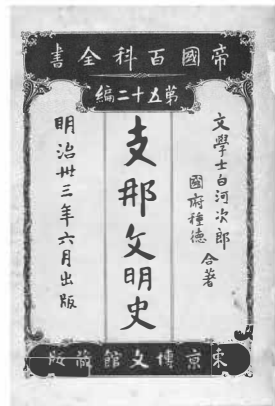 帝國百科全書
第五十二編
文學士白河次郎
國府種德 合著
支那文明史
明治卅三年六月出版
東京博文館藏版